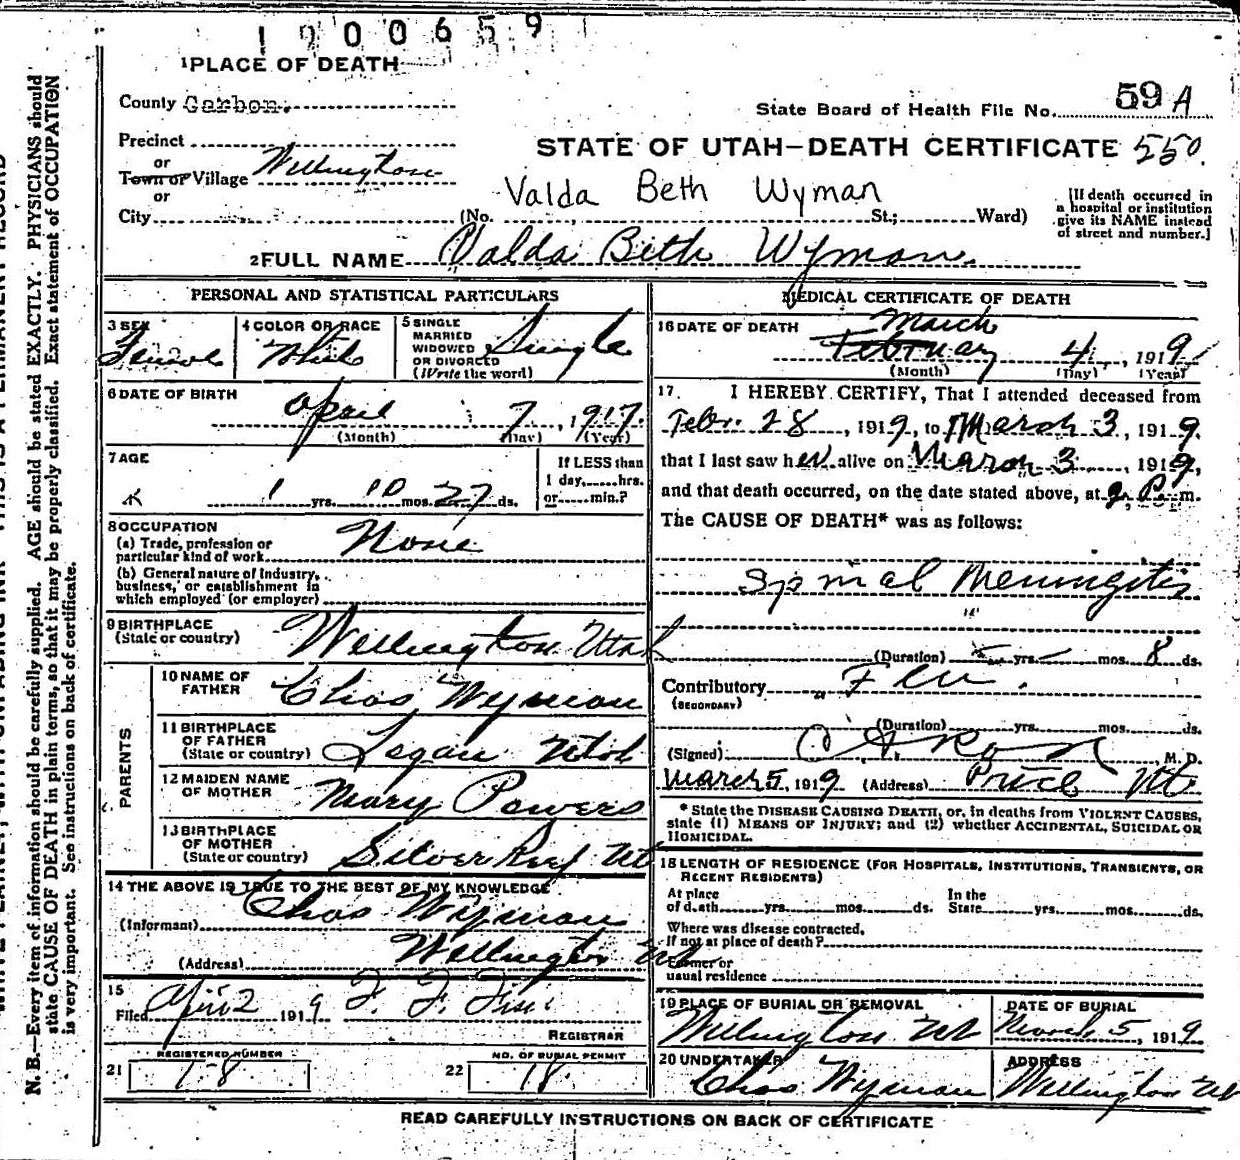 1900659
1 PLACE OF DEATH
County Carbon.
State Board of Health File No. 59 A
Precinct
or
Town or Village Wellington
or
STATE OF UTAH—DEATH CERTIFICATE 550.
Valda Beth Wyman
City (No. St.; Ward)
[If death occurred in
a hospital or institution
give its NAME instead
of street and number.]
2 FULL NAME Valda Beth Wyman.
PERSONAL AND STATISTICAL PARTICULARS
3 SEX
Female
4 COLOR OR RACE
White
5 SINGLE
MARRIED
WIDOWED
OR DIVORCED
(Write the word)
Single
6 DATE OF BIRTH
April 7, 1917.
(Month) (Day) (Year)
7 AGE
1 yrs. 10 mos. 27 ds.
If LESS than
1 day, hrs.
or min.?
8 OCCUPATION
(a) Trade, profession or
particular kind of work None
(b) General nature of industry,
business, or establishment in
which employed (or employer)
9 BIRTHPLACE
(State or country) Wellington Utah
PARENTS
10 NAME OF
FATHER Chas Wyman
11 BIRTHPLACE
OF FATHER
(State or country) Logan Utah
12 MAIDEN NAME
OF MOTHER Mary Powers
13 BIRTHPLACE
OF MOTHER
(State or country) Silver Reef Ut
14 THE ABOVE IS TRUE TO THE BEST OF MY KNOWLEDGE
(Informant) Chas Wyman
(Address) Wellington Ut
15
Filed 2 1919 F. F.
REGISTRAR
21 REGISTERED NUMBER
1-8
22 NO. OF BURIAL PERMIT
18
MEDICAL CERTIFICATE OF DEATH
16 DATE OF DEATH March
February 4, 1919
(Month) (Day) (Year)
17. I HEREBY CERTIFY, That I attended deceased from
Febr. 28, 1919, to March 3, 1919.
that I last saw her alive on March 3, 1919,
and that death occurred, on the date stated above, at P. m.
The CAUSE OF DEATH* was as follows:
Spinal Meningitis
(Duration) yrs. mos. 8 ds.
Contributory Flu.
(SECONDARY)
(Duration) yrs. mos. ds.
(Signed) M. D.
March 5, 1919 (Address) Price Ut
* State the DISEASE CAUSING DEATH, or, in deaths from VIOLENT CAUSES,
state (1) MEANS OF INJURY; and (2) whether ACCIDENTAL, SUICIDAL OR
HOMICIDAL.
18 LENGTH OF RESIDENCE (FOR HOSPITALS, INSTITUTIONS, TRANSIENTS, OR
RECENT RESIDENTS)
At place In the
of death yrs. mos. ds. State yrs. mos. ds.
Where was disease contracted,
If not at place of death?
Former or
usual residence
19 PLACE OF BURIAL OR REMOVAL
Wellington Ut
DATE OF BURIAL
March 5, 1919
20 UNDERTAKER
Chas Wyman
ADDRESS
Wellington Ut
READ CAREFULLY INSTRUCTIONS ON BACK OF CERTIFICATE
N. B.—Every item of information should be carefully supplied. AGE should be stated EXACTLY. PHYSICIANS should
state CAUSE OF DEATH in plain terms, so that it may be properly classified. Exact statement of OCCUPATION
is very important. See instructions on back of certificate.